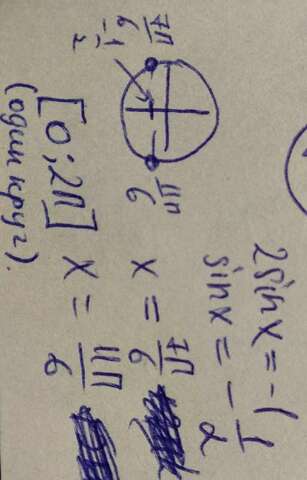 2sinx = -1
sinx = - 1/2
x = 7π/6
x = 11π/6
7π/6
- 1/2
11π/6
[0; 2π]
(один круг).